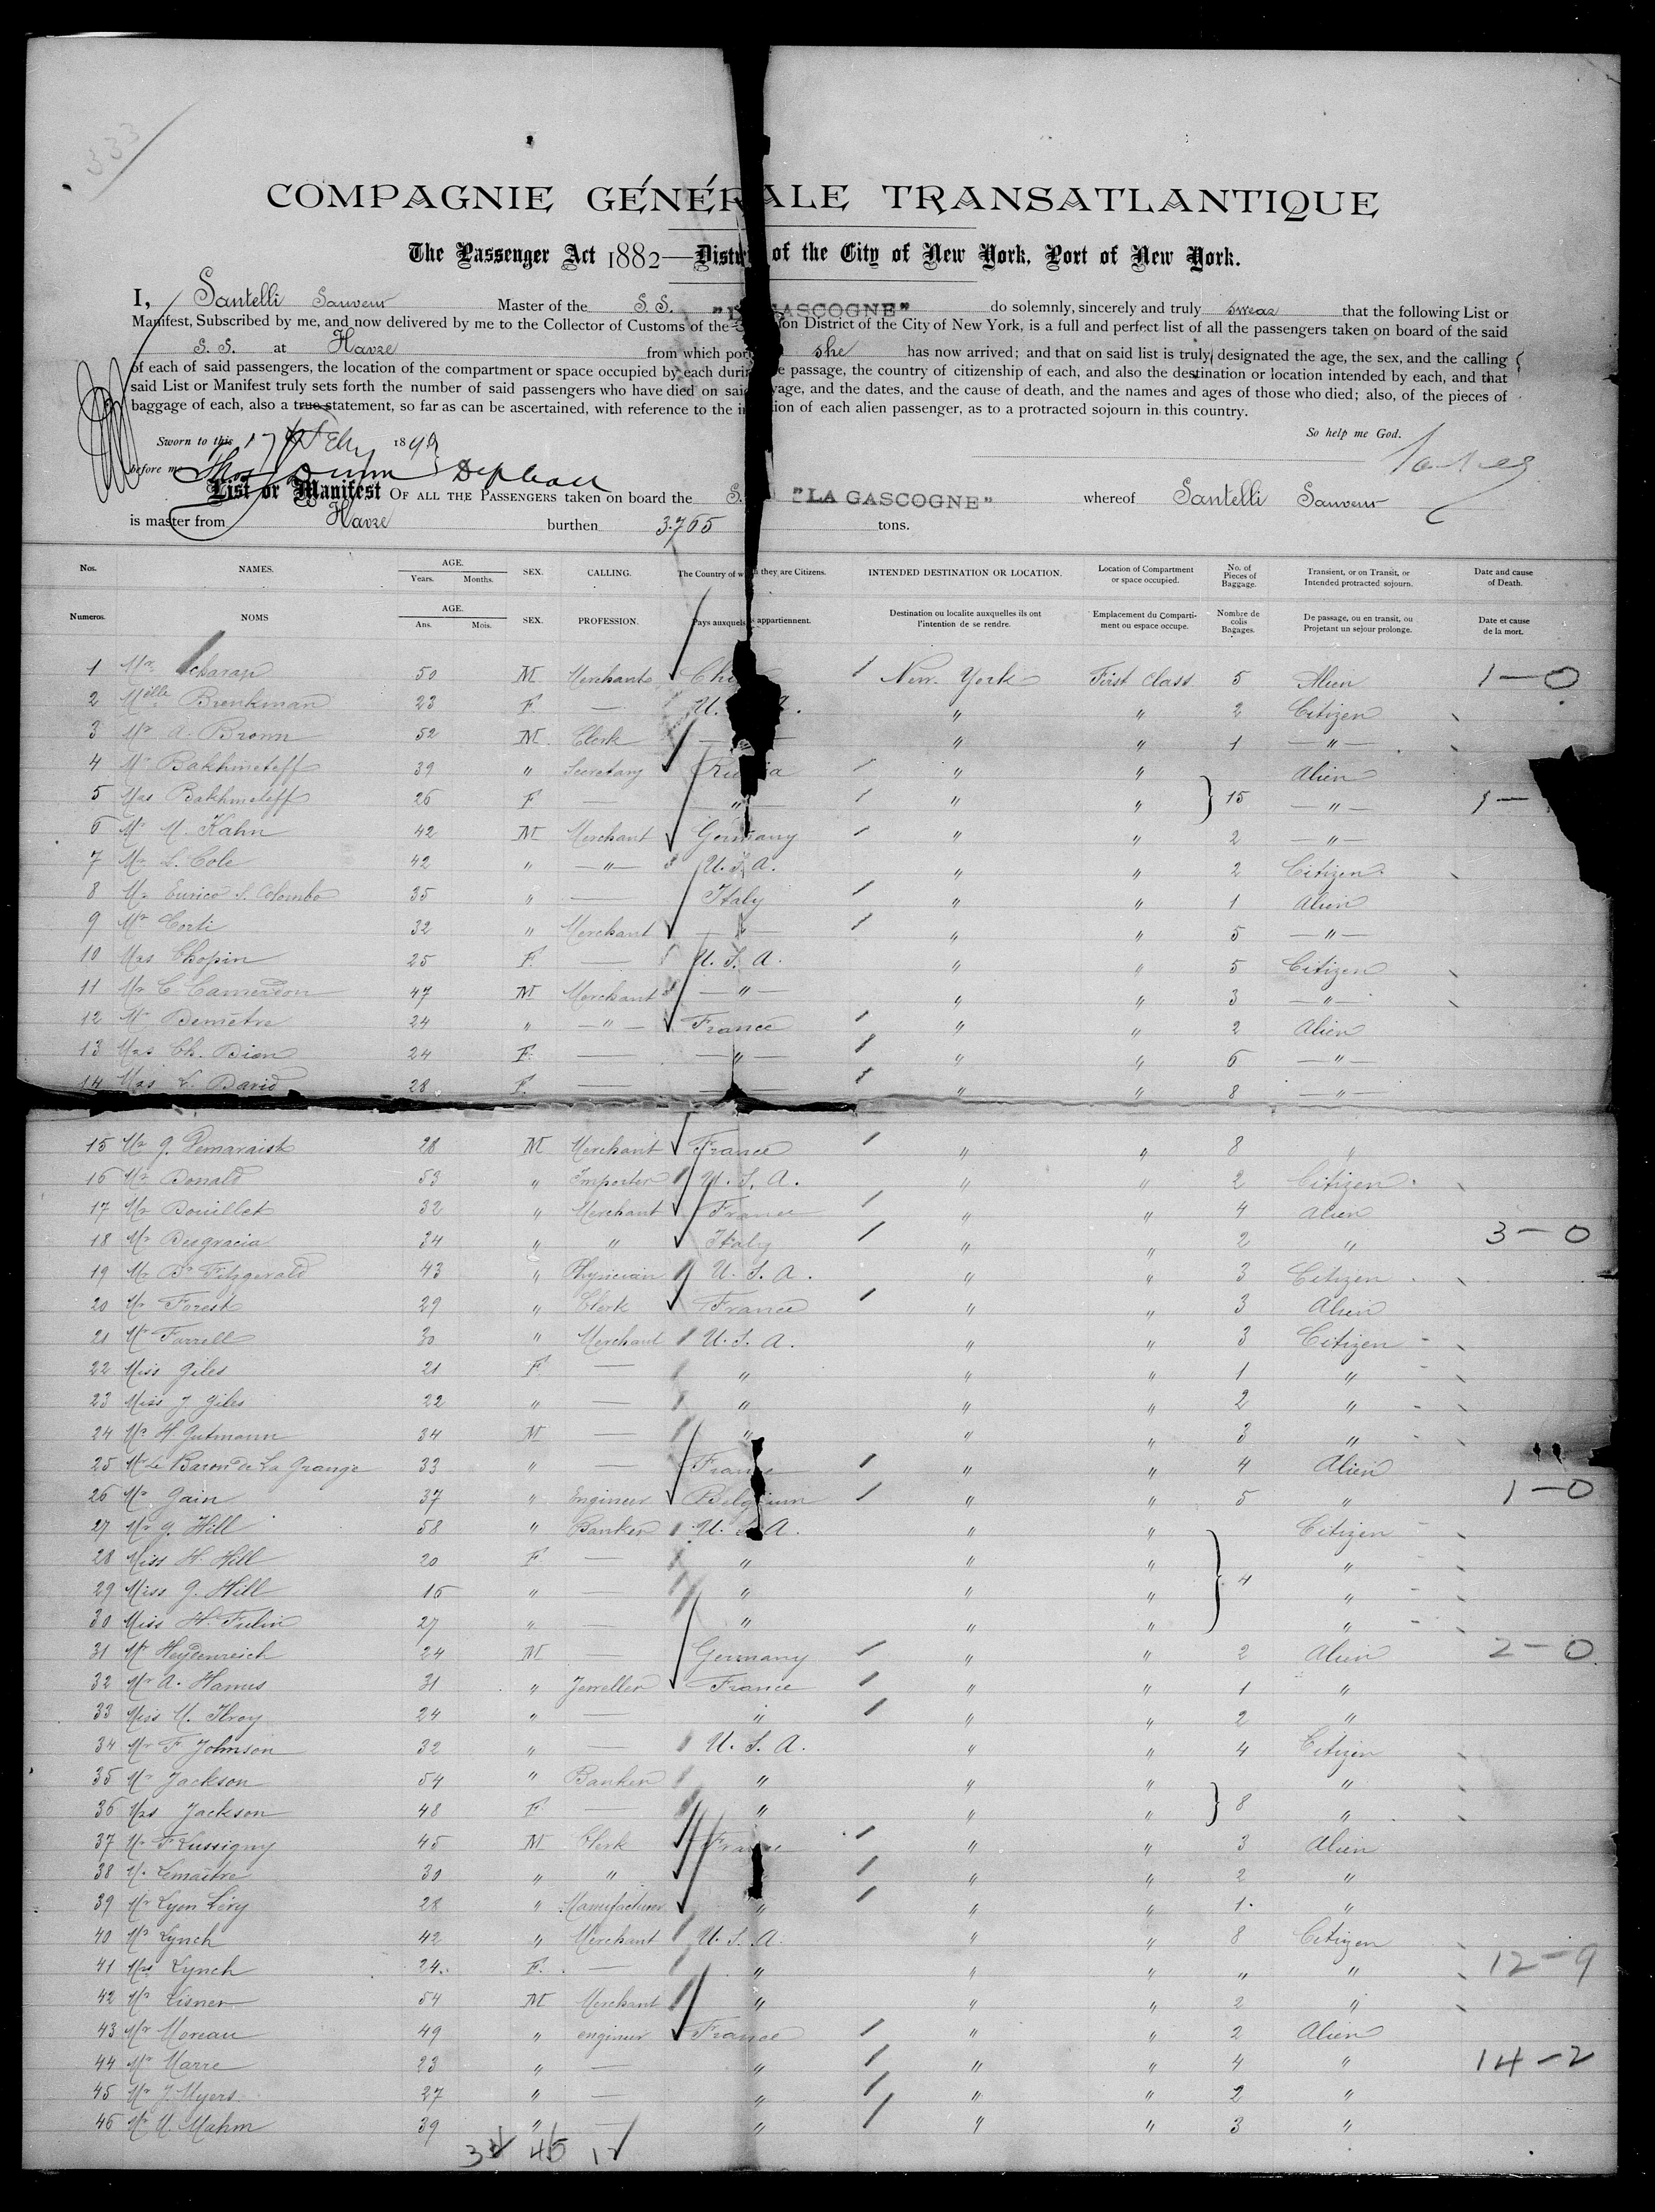 COMPAGNIE GÉNÉRALE TRANSATLANTIQUE
The Passenger Act 1882—District of the City of New York, Port of New York.
I, Santelli Sauveur Master of the S. S. "LA GASCOGNE" do solemnly, sincerely and truly swear that the following List or
Manifest, Subscribed by me, and now delivered by me to the Collector of Customs of the Collection District of the City of New York, is a full and perfect list of all the passengers taken on board of the said
S. S. at Havre from which port she has now arrived; and that on said list is truly designated the age, the sex, and the calling
of each of said passengers, the location of the compartment or space occupied by each during the passage, the country of citizenship of each, and also the destination or location intended by each, and that
said List or Manifest truly sets forth the number of said passengers who have died on said voyage, and the dates, and the cause of death, and the names and ages of those who died; also, of the pieces of
baggage of each, also a true statement, so far as can be ascertained, with reference to the intention of each alien passenger, as to a protracted sojourn in this country.
So help me God.
Sworn to this 17 Feby 1890
before me
List or Manifest OF ALL THE PASSENGERS taken on board the S. "LA GASCOGNE" whereof Santelli Sauveur
is master from Havre burthen 3.765 tons.
Nos. NAMES. AGE. Years. Months. SEX. CALLING. The Country of which they are Citizens. INTENDED DESTINATION OR LOCATION. Location of Compartment or space occupied. No. of Pieces of Baggage. Transient, or on Transit, or Intended protracted sojourn. Date and cause of Death.
Numeros. NOMS AGE. Ans. Mois. SEX. PROFESSION. Pays auxquels ils appartiennent. Destination ou localite auxquelles ils ont l'intention de se rendre. Emplacement du Compartiment ou espace occupe. Nombre de colis Bagages. De passage, ou en transit, ou Projetant un sejour prolonge. Date et cause de la mort.
1 Mr 50 M Merchant New York First Class 5 Alien 1—0
2 Mlle Brenkman 23 F — U. S. A. " " 2 Citizen
3 Mr A. Brown 52 M Clerk — " " 1 —"—
4 Mr Bakhmeteff 39 " Secretary Russia " " Alien
5 Mrs Bakhmeteff 26 F — " " " 15 —"— 1—
6 Mr M. Kahn 42 M Merchant Germany " " 2 —"—
7 Mr L. Cole 42 " —"— U. S. A. " " 2 Citizen
8 Mr Enrico S. Colombo 35 " — Italy " " 1 Alien
9 Mr Corti 32 " Merchant — " " 5 —"—
10 Mrs Chopin 25 F. — U. S. A. " " 5 Citizen
11 Mr C. Camerdon 47 M Merchant —"— " " 3 —"—
12 Mr Demètre 24 " —"— France " " 2 Alien
13 Mrs Ch. Dion 24 F. — —"— " " 6 —"—
14 Mrs L. David 28 F. — — " " 8 —"—
15 Mr J. Demaraist 28 M Merchant France " " 8 "
16 Mr Donald 53 " Importer U. S. A. " " 2 Citizen
17 Mr Douillet 32 " Merchant France " " 4 Alien
18 Mr Desgracia 34 " " Italy " " 2 " 3—0
19 Mr Dr Fitzgerald 43 " Physician U. S. A. " " 3 Citizen
20 Mr Forest 29 " Clerk France " " 3 Alien
21 Mr Farrell 30 " Merchant U. S. A. " " 3 Citizen
22 Miss Giles 21 F — " " " 1 "
23 Miss J Giles 22 " — " " " 2 "
24 Mr H. Gutmann 34 M — " " " 3 "
25 Mr Le Baron de La Grange 33 " — France " " 4 Alien
26 Mr Gain 37 " Engineer Belgium " " 5 " 1—0
27 Mr G. Hill 58 " Banker U. S. A. " " Citizen
28 Miss H. Hill 20 F — " " " "
29 Miss G. Hill 16 " — " " " 4 "
30 Miss H. 27 " — " " " "
31 Mr Heydenreich 24 M — Germany " " 2 Alien 2—0
32 Mr A. Hamus 31 " Jeweller France " " 1 "
33 Miss M. Ilroy 24 " — " " " 2 "
34 Mr F. Johnson 32 " — U. S. A. " " 4 Citizen
35 Mr Jackson 54 " Banker " " " "
36 Mrs Jackson 48 F. — " " " 8 "
37 Mr F Lussigny 45 M Clerk France " " 3 Alien
38 M. Lemaître 30 " " " " 2 "
39 Mr Lyon Lévy 28 " Manufacturer " " " 1. "
40 Mr Lynch 42 " Merchant U. S. A. " " 8 Citizen
41 Mrs Lynch 24. F. — " " " " " 12—9
42 Mr Lisner 54 M Merchant " " " 2 "
43 Mr Moreau 49 " engineer France " " 2 Alien
44 Mr Marre 23 " — " " " 4 " 14—2
45 Mr J. Myers 27 " — " " " 2 "
46 Mr M. Mahm 39 " — " " " 3 "